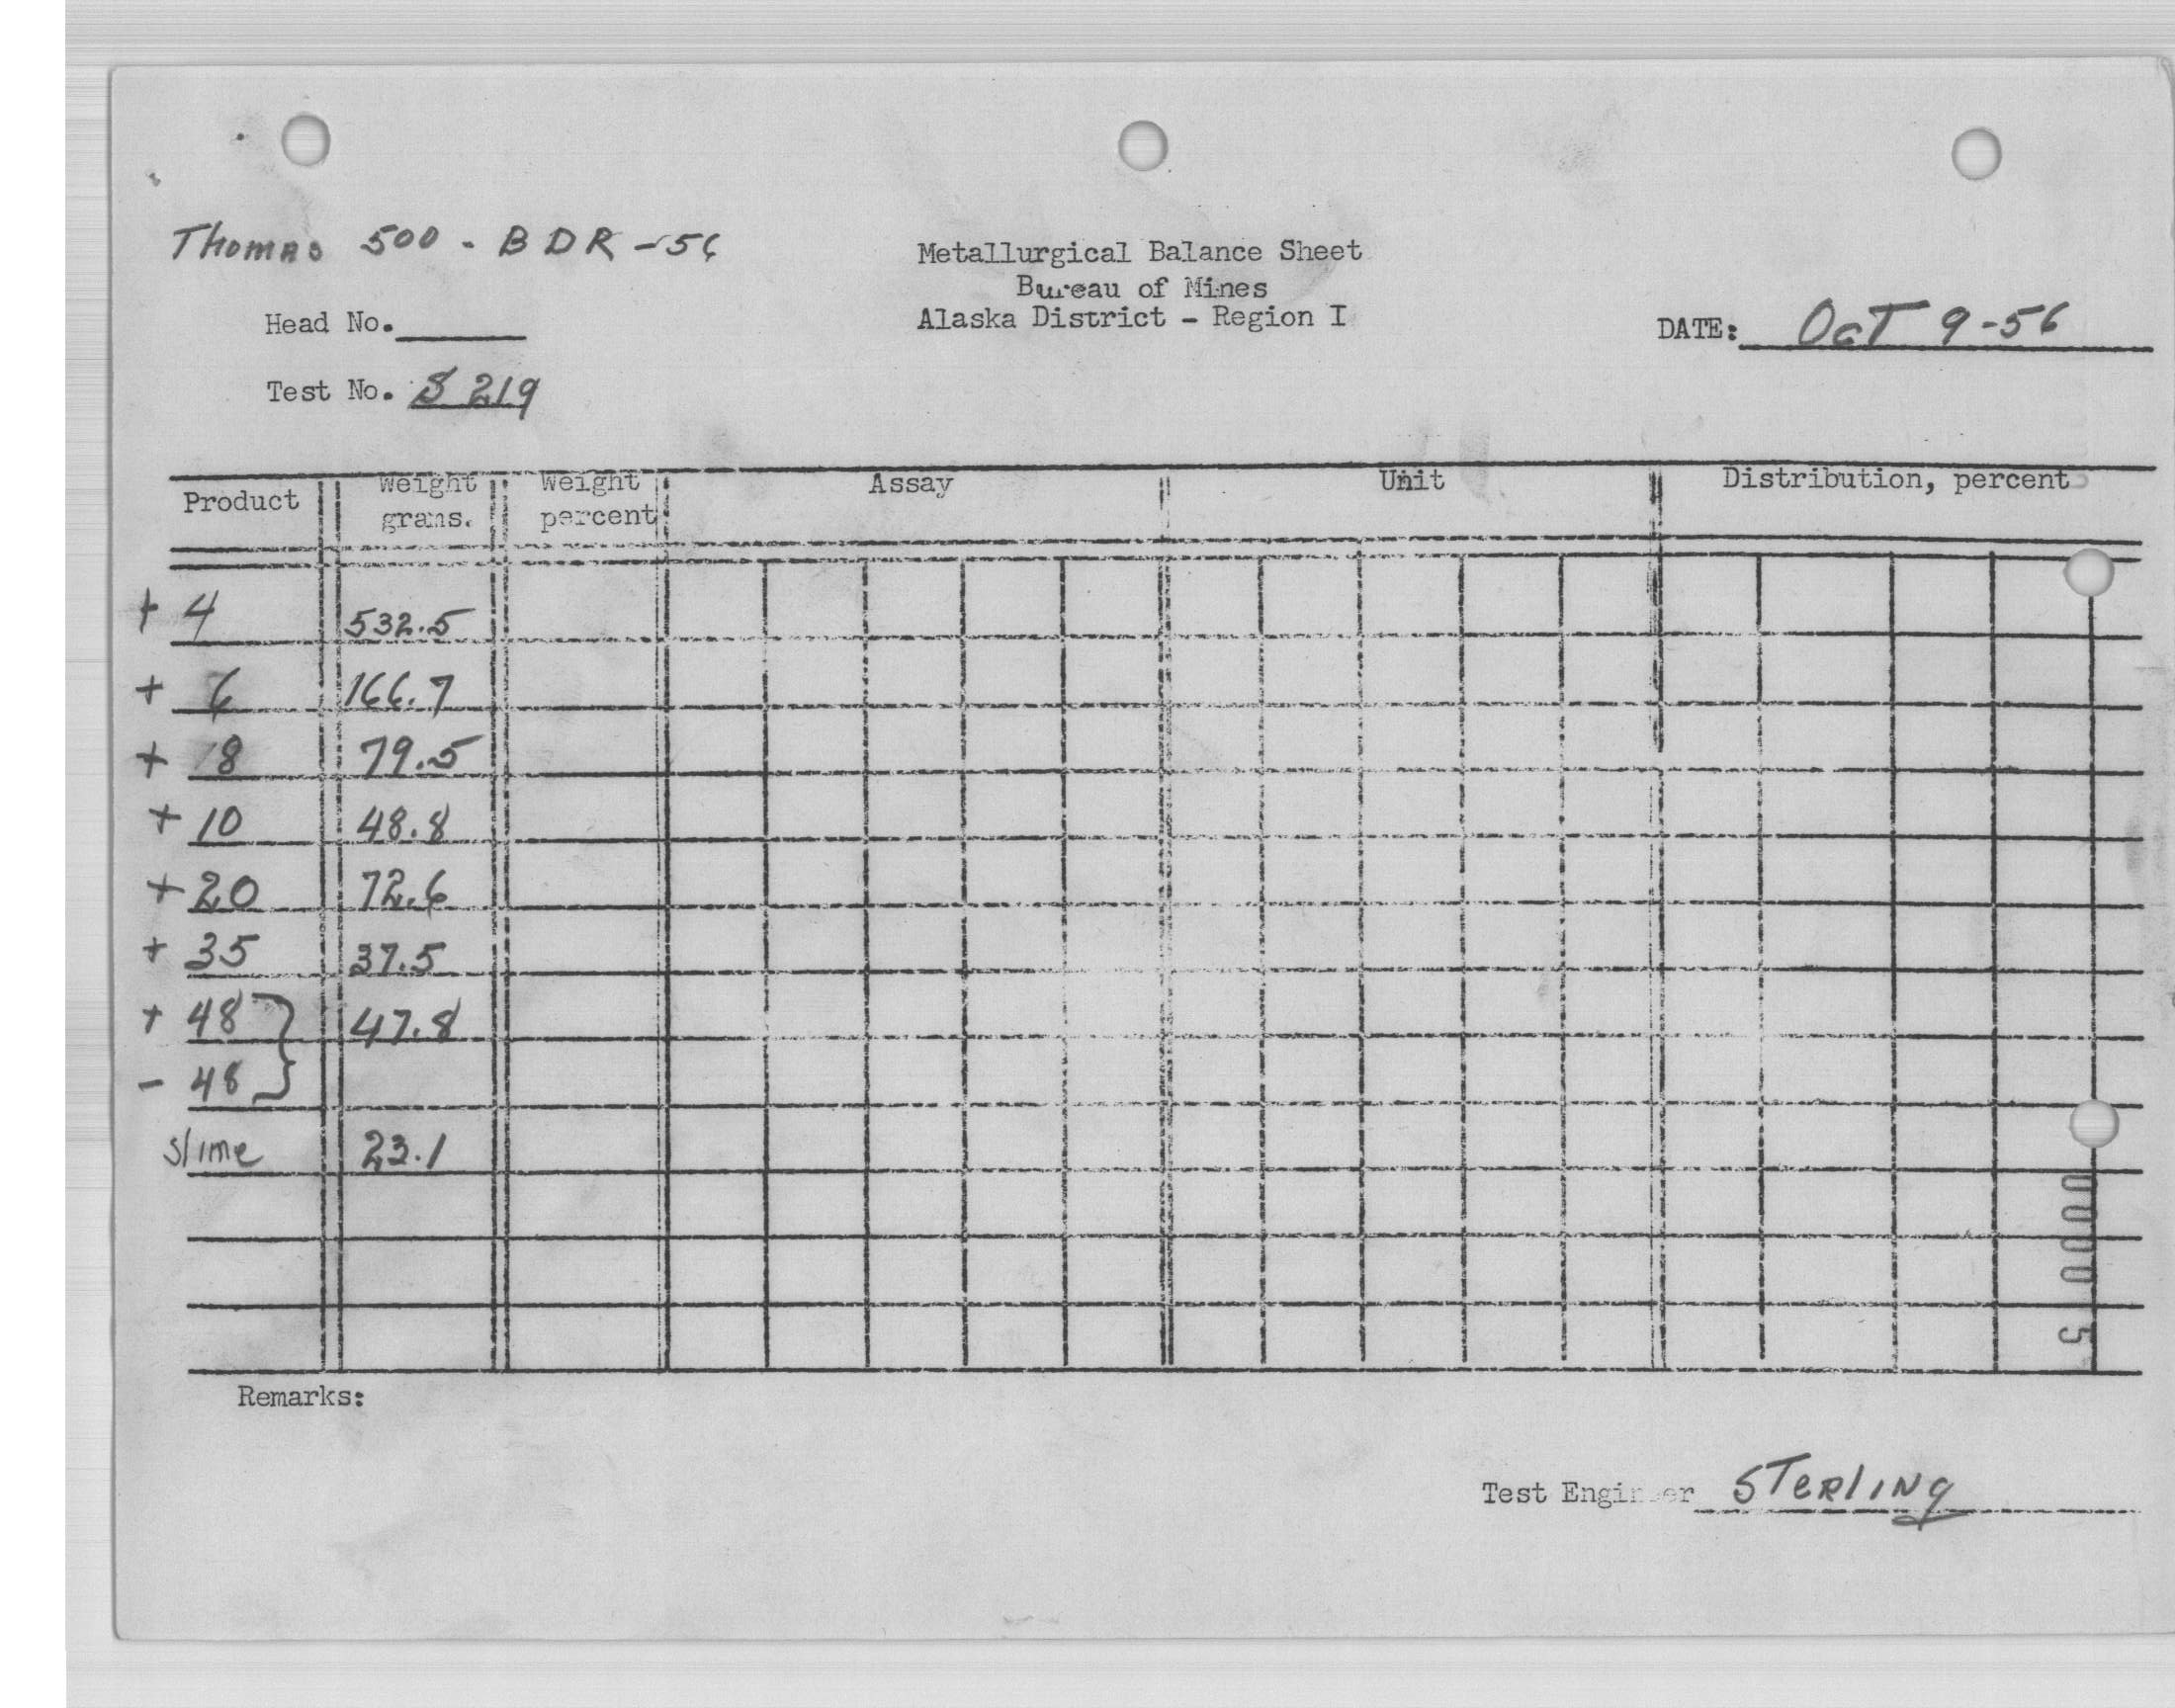 Thomas 500 - BDR - 56
Metallurgical Balance Sheet
Bureau of Mines
Alaska District - Region I
Head No.
DATE: Oct 9-56
Test No. S 219
Product Weight grams. Weight percent Assay Unit Distribution, percent
+ 4 532.5
+ 6 166.7
+ 8 79.5
+ 10 48.8
+ 20 72.6
+ 35 37.5
+ 48 } 47.8
- 48
slime 23.1
00005
Remarks:
Test Engineer Sterling